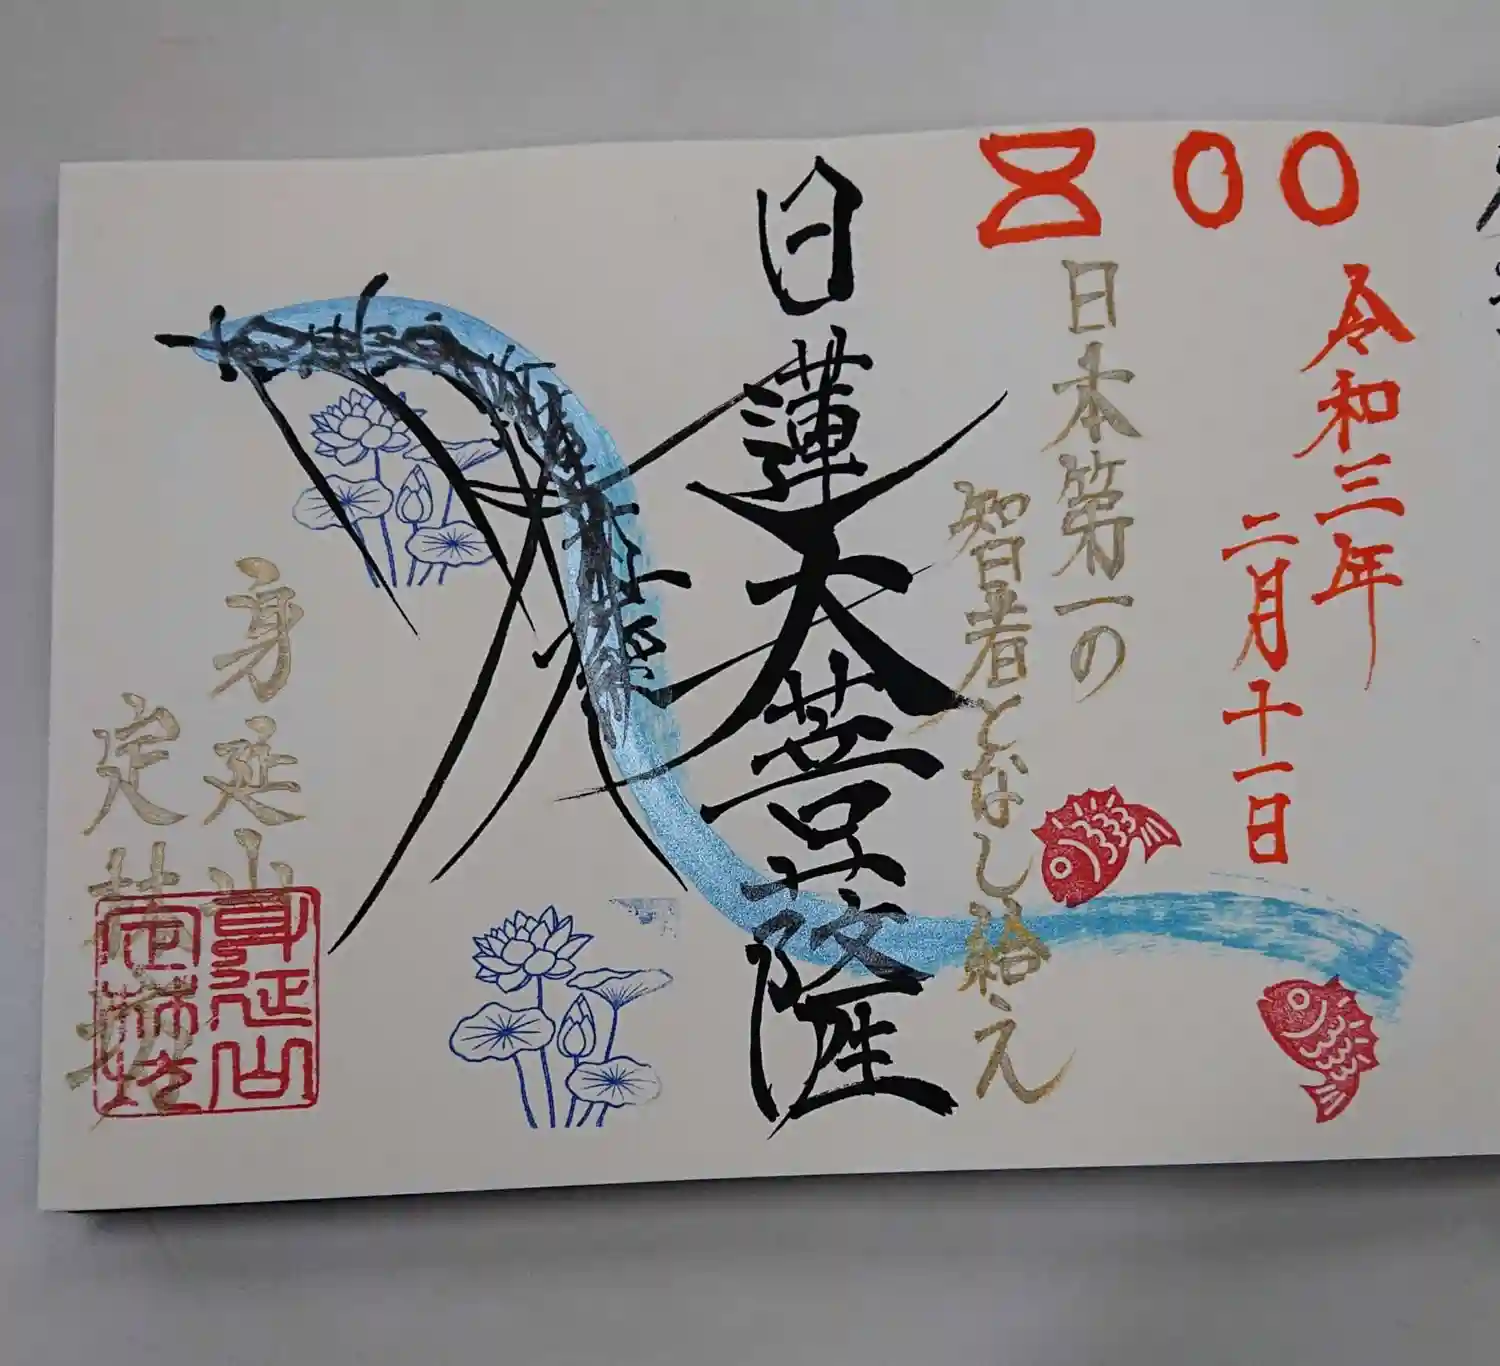 800
令和三年
二月十一日
日本第一の
智者となし給え
日蓮大菩薩
身延山
定林坊
身延山
定林坊